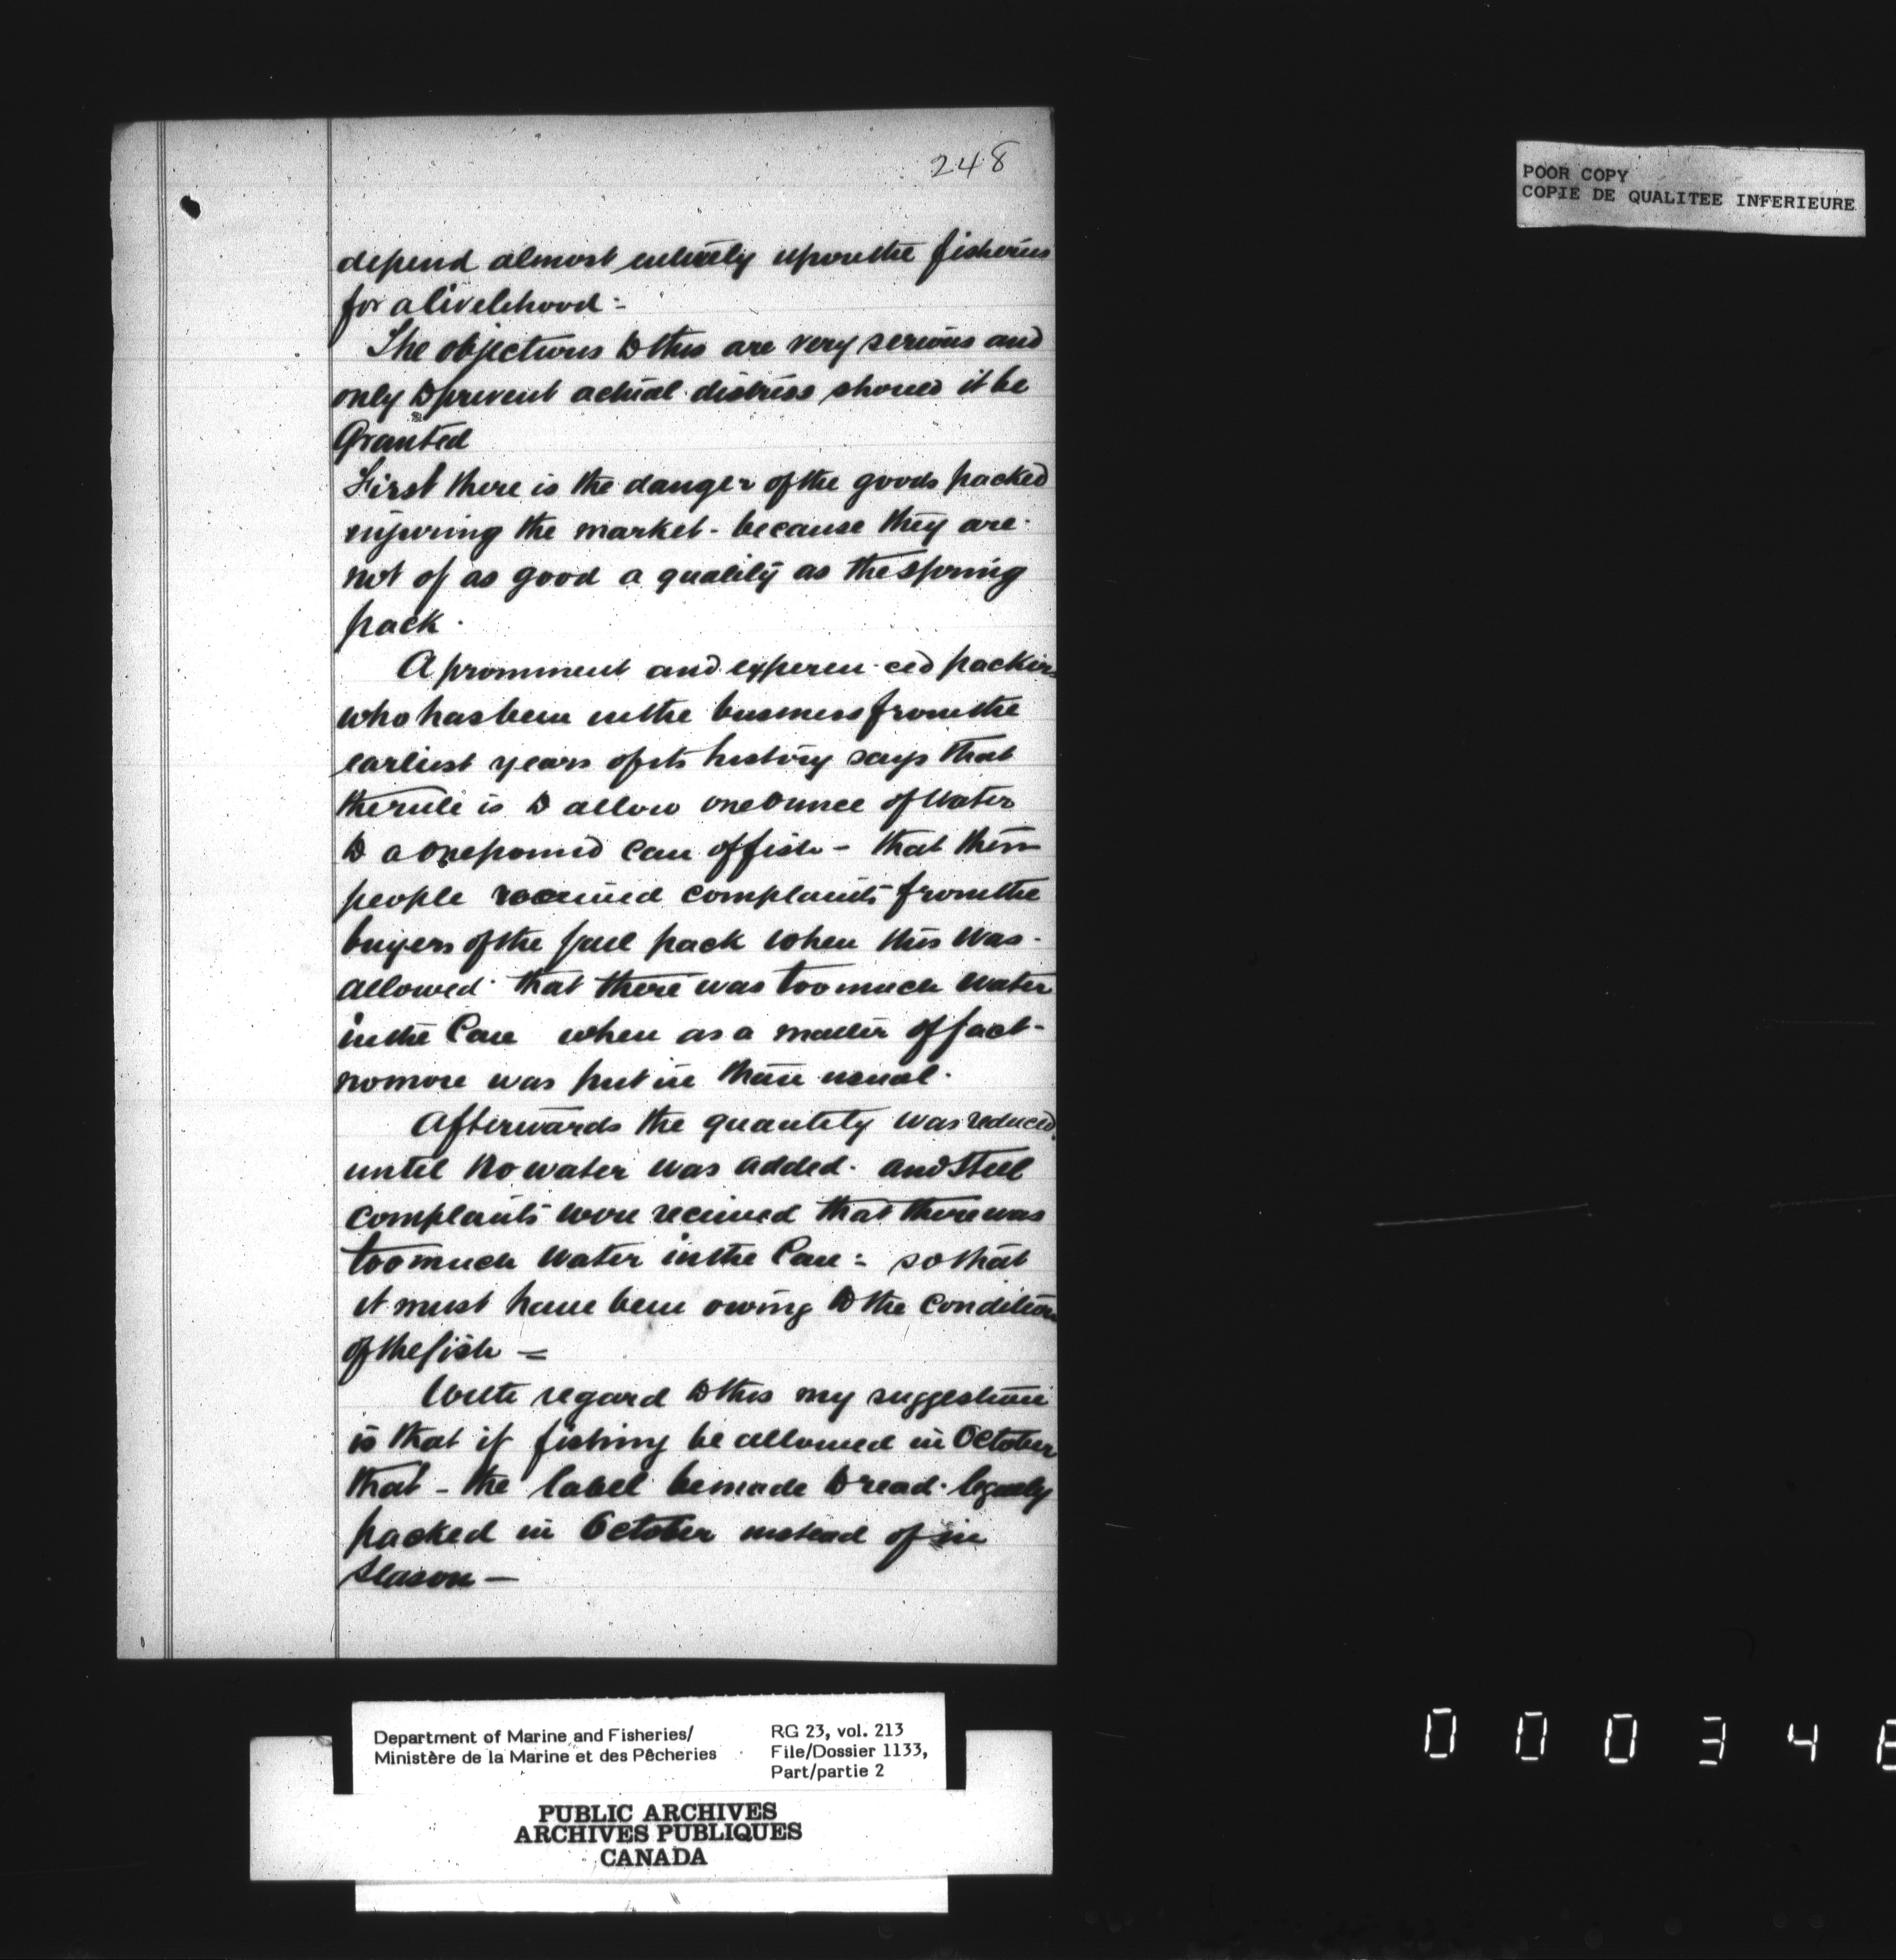 248
POOR COPY
COPIE DE QUALITEE INFERIEURE
depend almost entirely upon the fisheries
for a livelihood -
The objections to this are very serious and
only to prevent actual distress should it be
Granted
First there is the danger of the goods packed
injuring the market - because they are
not of as good a quality as the spring
pack.
A prominent and experienced packer
who has been in the business from the
earliest years of its history says that
the rule is to allow one ounce of water
to a one pound can of fish - that
people received complaints from the
buyers of the fall pack when this was
allowed that there was too much water
in the Can when as a matter of fact -
no more was put in than usual.
Afterwards the quantity was reduced
until no water was added. and still
complaints were received that there was
too much water in the Can = so that
it must have been owing to the condition
of the fish =
With regard to this my suggestion
is that if fishing be allowed in October
that - the label be made to read. legally
packed in October instead of in
season —
Department of Marine and Fisheries/
Ministère de la Marine et des Pêcheries
RG 23, vol. 213
File/Dossier 1133,
Part/partie 2
PUBLIC ARCHIVES
ARCHIVES PUBLIQUES
CANADA
0 0 0 3 4